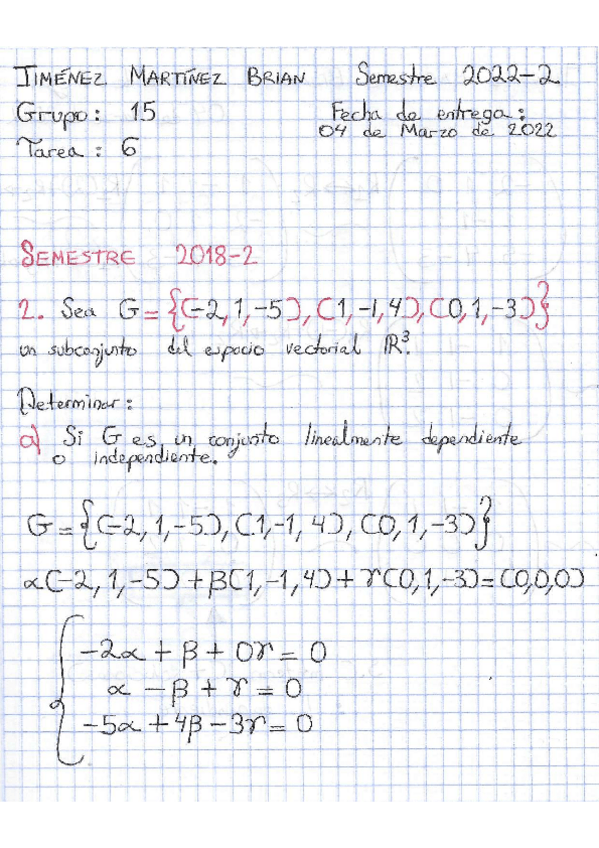 JIMÉNEZ MARTÍNEZ BRIAN Semestre 2022-2
Grupo: 15 Fecha de entrega:
04 de Marzo de 2022
Tarea: 6
SEMESTRE 2018-2
2. Sea G = {(-2, 1, -5), (1, -1, 4), (0, 1, -3)}
un subconjunto del espacio vectorial ℝ³.
Determinar:
a) Si G es un conjunto linealmente dependiente
o independiente.
G = {(-2, 1, -5), (1, -1, 4), (0, 1, -3)}
α(-2, 1, -5) + β(1, -1, 4) + γ(0, 1, -3) = (0,0,0)
-2α + β + 0γ = 0
α - β + γ = 0
-5α + 4β - 3γ = 0